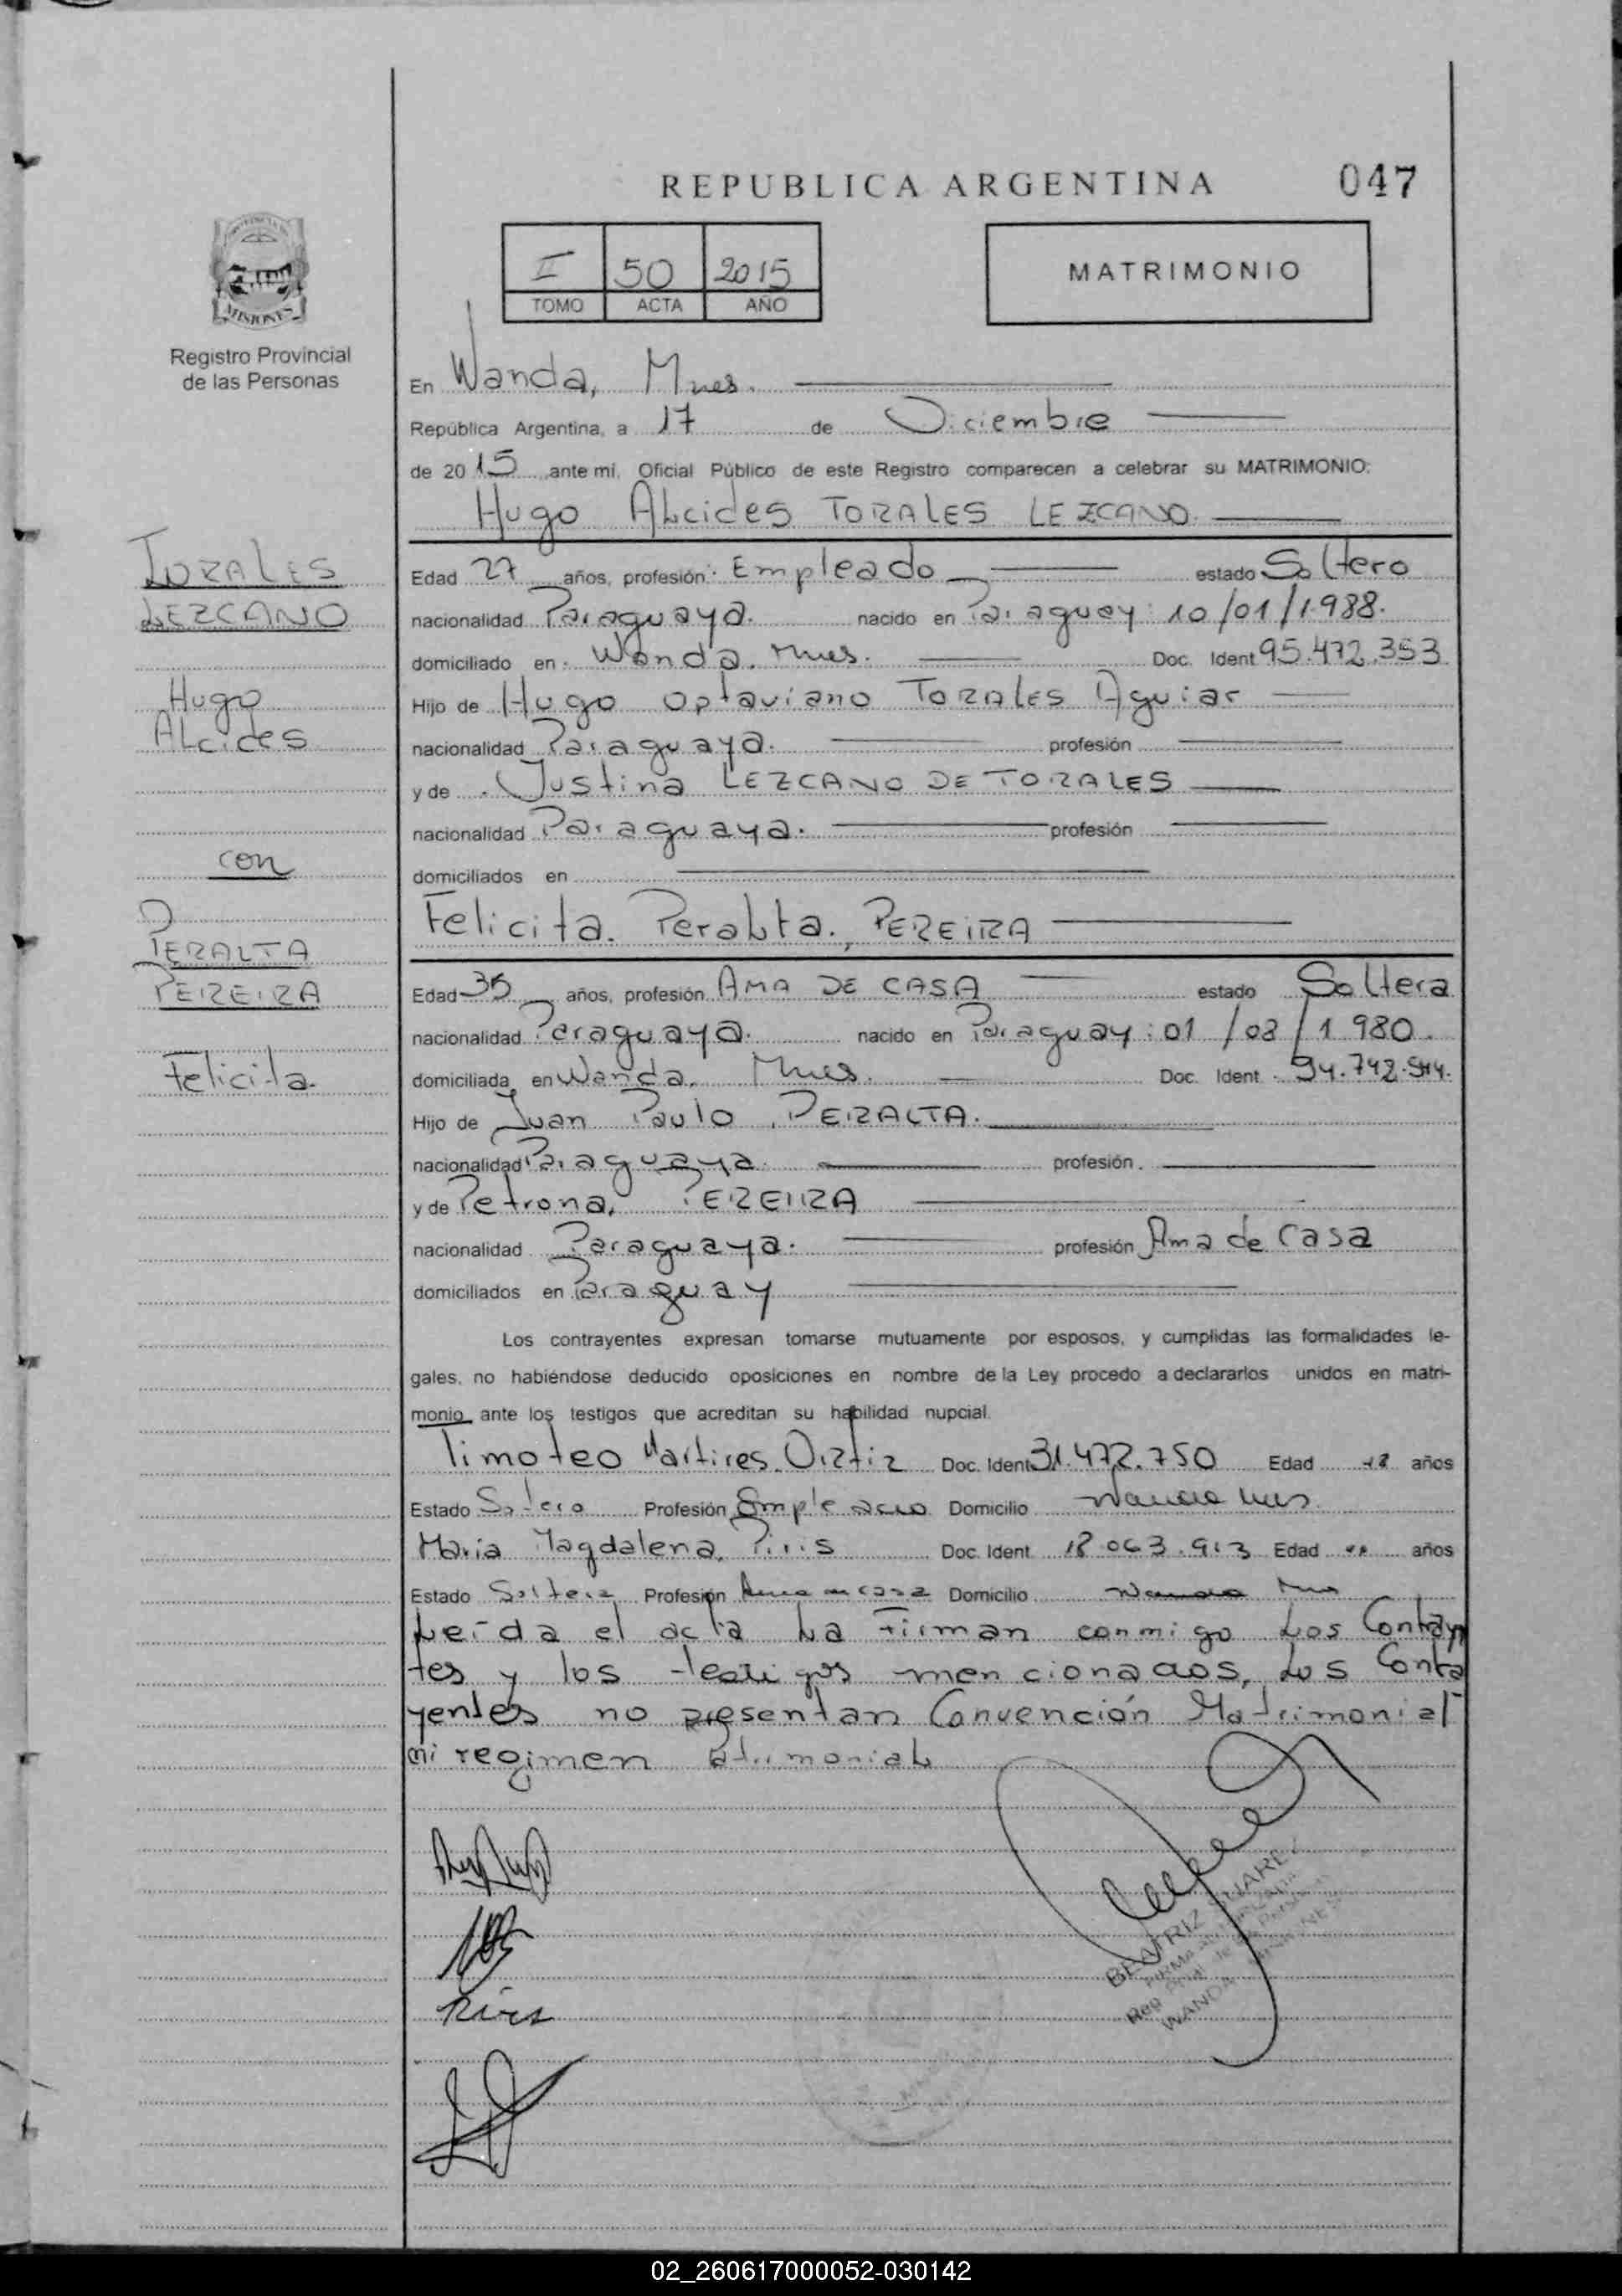 REPUBLICA ARGENTINA
047
MISIONES
Registro Provincial
de las Personas
I 50 2015
TOMO ACTA AÑO
MATRIMONIO
En Wanda, Mnes.
República Argentina, a 17 de Diciembre
de 2015 ante mi, Oficial Público de este Registro comparecen a celebrar su MATRIMONIO:
Hugo Alcides TORALES LEZCANO
TORALES
LEZCANO
Hugo
Alcides
con
PERALTA
PEREIRA
Felicita.
Edad 27 años, profesión: Empleado estado Soltero
nacionalidad Paraguaya. nacido en Paraguay: 10/01/1.988.
domiciliado en: Wanda. Mnes. Doc. Ident 95.472.353
Hijo de Hugo Optaviano TORALES Aguiar
nacionalidad Paraguaya. profesión
y de Justina LEZCANO DE TORALES
nacionalidad Paraguaya. profesión
domiciliados en
Felicita. Peralta. PEREIRA
Edad 35 años, profesión AMA DE CASA estado Soltera
nacionalidad Paraguaya. nacido en Paraguay: 01/03/1980.
domiciliada en Wanda. Mnes. Doc. Ident.
Hijo de Juan Paulo PERALTA.
nacionalidad Paraguaya. profesión.
y de Petrona, PEREIRA
nacionalidad Paraguaya. profesión Ama de Casa
domiciliados en Paraguay
Los contrayentes expresan tomarse mutuamente por esposos, y cumplidas las formalidades le-
gales, no habiéndose deducido oposiciones en nombre de la Ley procedo a declararlos unidos en matri-
monio ante los testigos que acreditan su habilidad nupcial.
Timoteo Martires Ortiz Doc. Ident 31.472.750 Edad años
Estado Soltero Profesión Empleado Domicilio Wanda Mnes.
Maria Magdalena, Piris Doc. Ident 18.063.913 Edad años
Estado Soltera Profesión Ama de casa Domicilio Wanda Mnes
Leida el acta La Firman conmigo Los Contrayn
tes y los testigos mencionados, Los Contra
yentes no presentan Convención Matrimonial
ni regimen atrimonial
Piris
BEATRIZ SUAREZ
WANDA
02_260617000052-030142